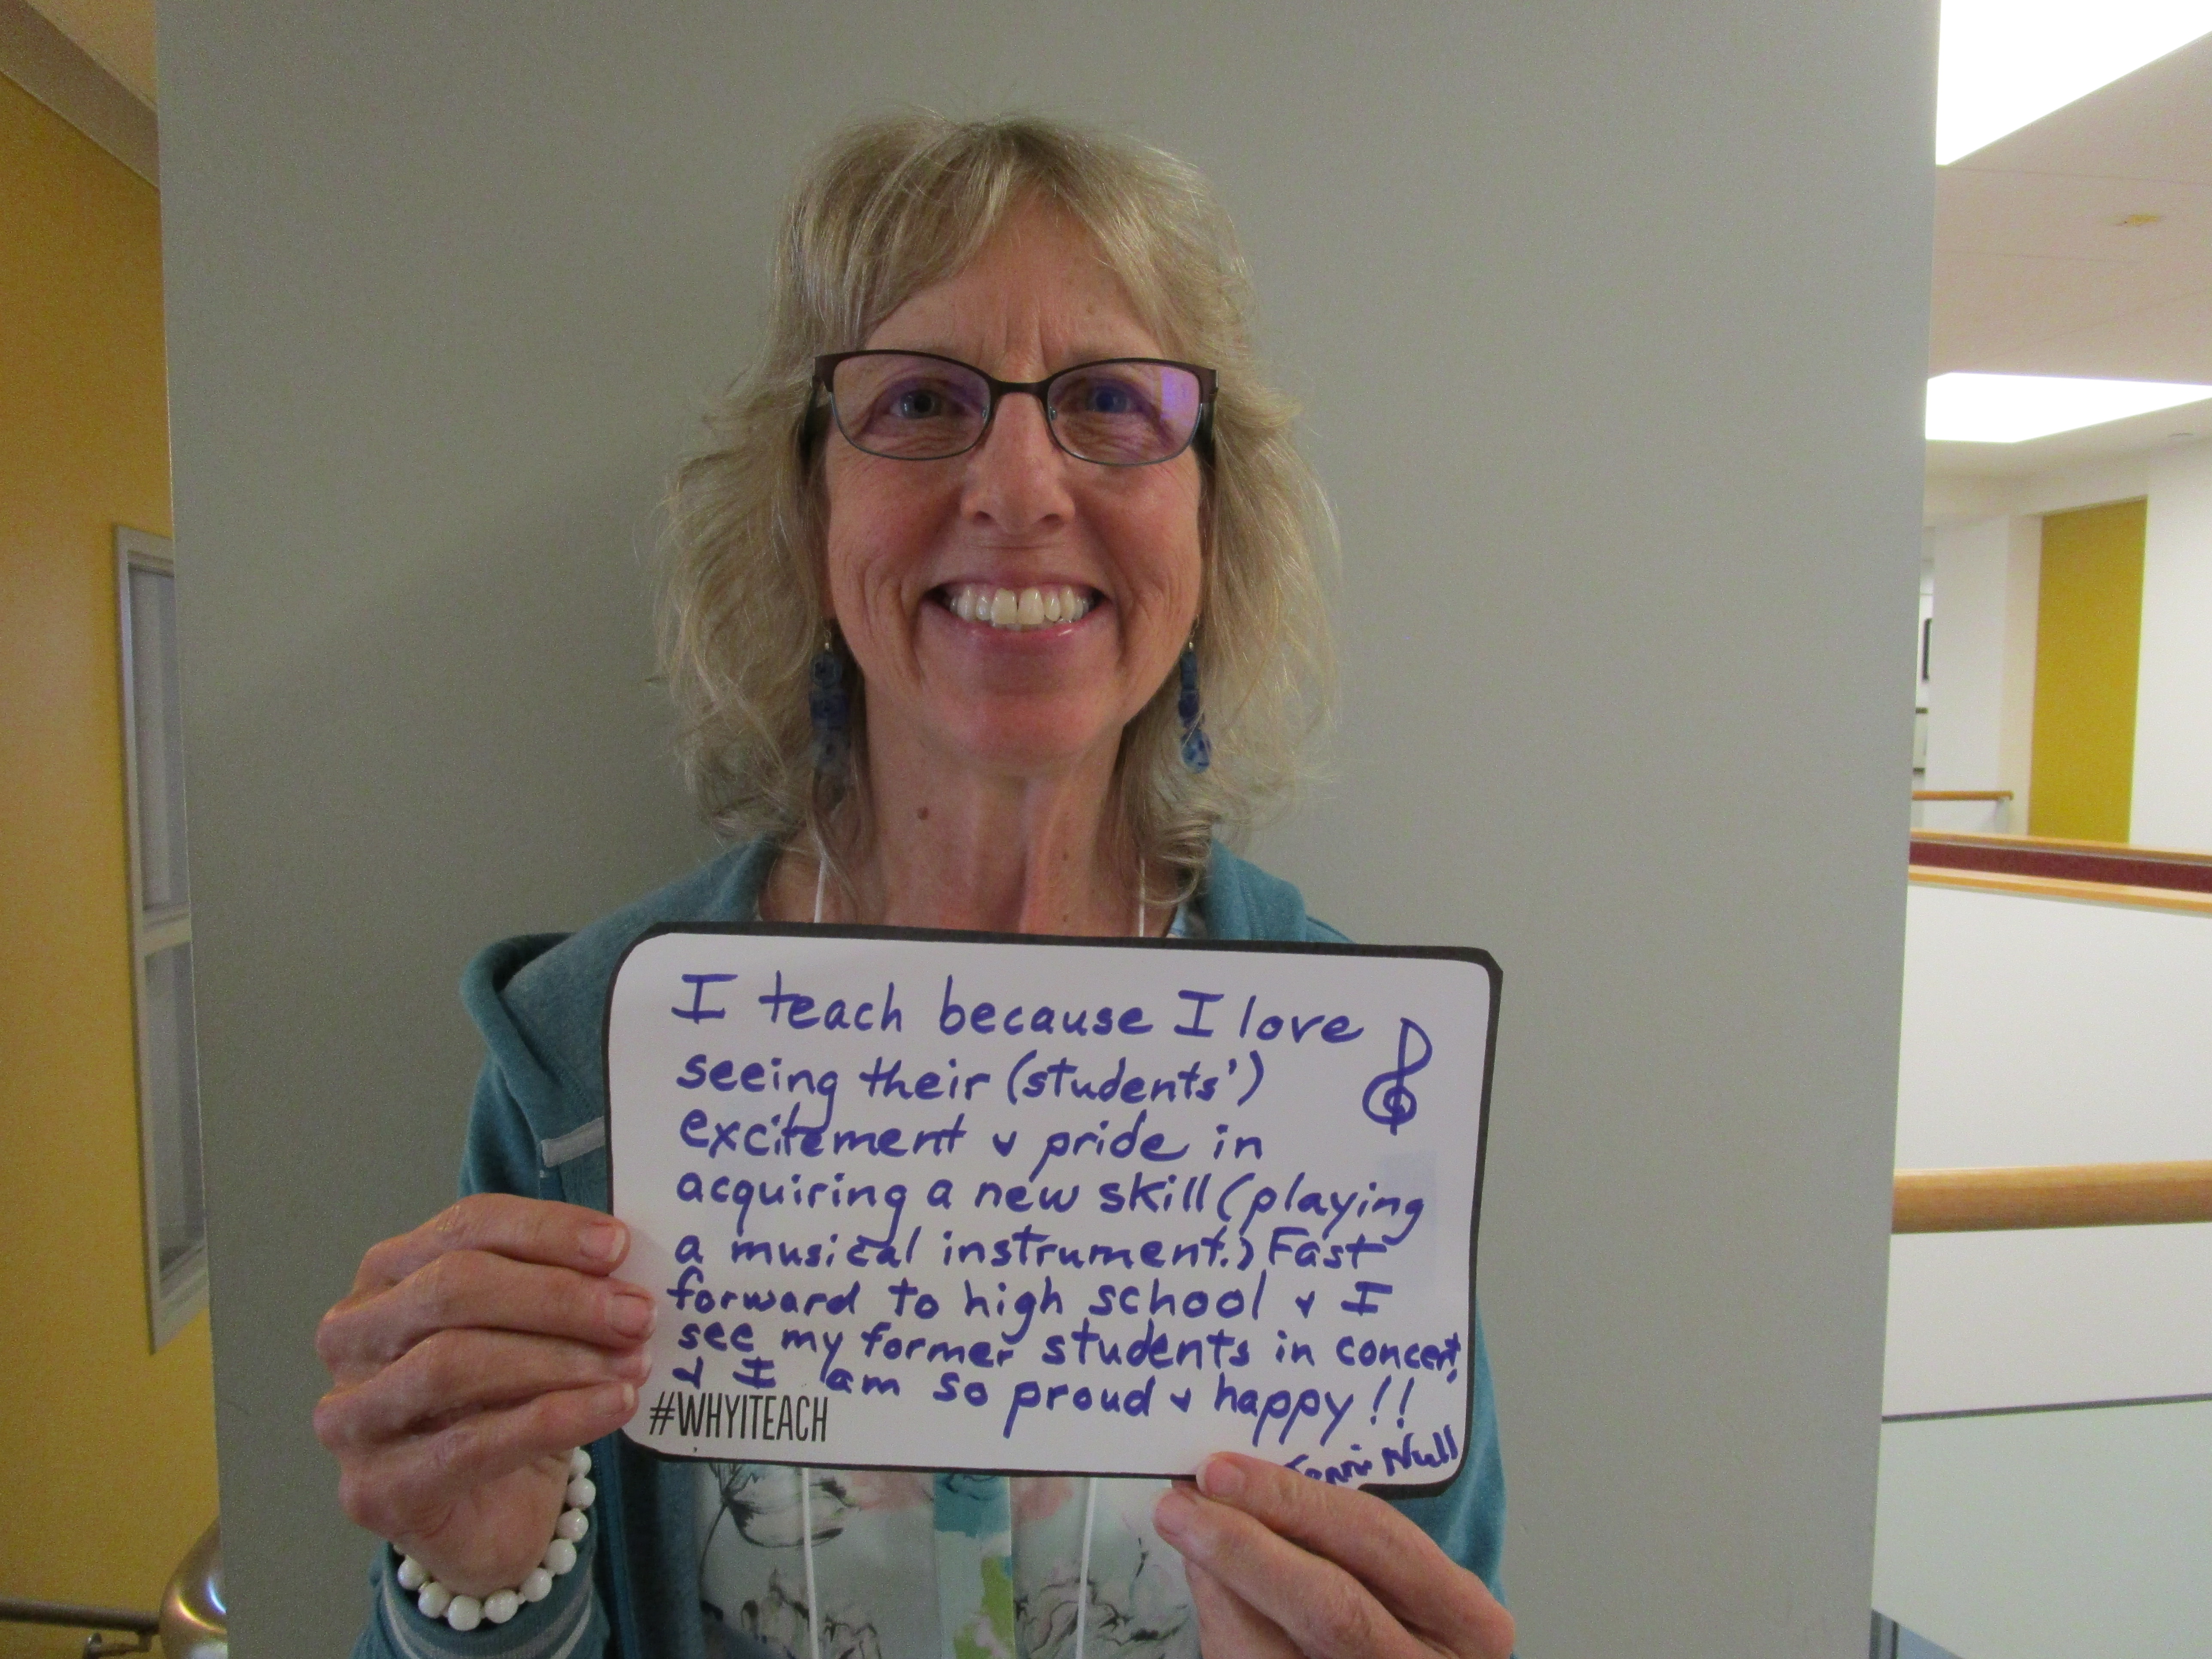 I teach because I love
seeing their (students')
excitement & pride in
acquiring a new skill (playing
a musical instrument.) Fast
forward to high school & I
see my former students in concert,
& I am so proud & happy!!
#WHYITEACH
Null